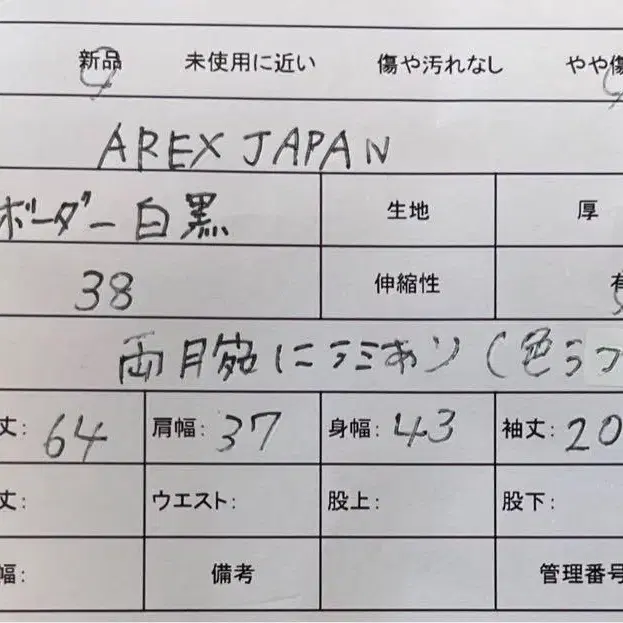 新品 未使用に近い 傷や汚れなし やや傷
AREX JAPAN
ボーダー 白黒 生地 厚
38 伸縮性 有
両腕にシミあり(色うつ
丈: 64 肩幅: 37 身幅: 43 袖丈: 20
丈: ウエスト: 股上: 股下:
幅: 備考 管理番号